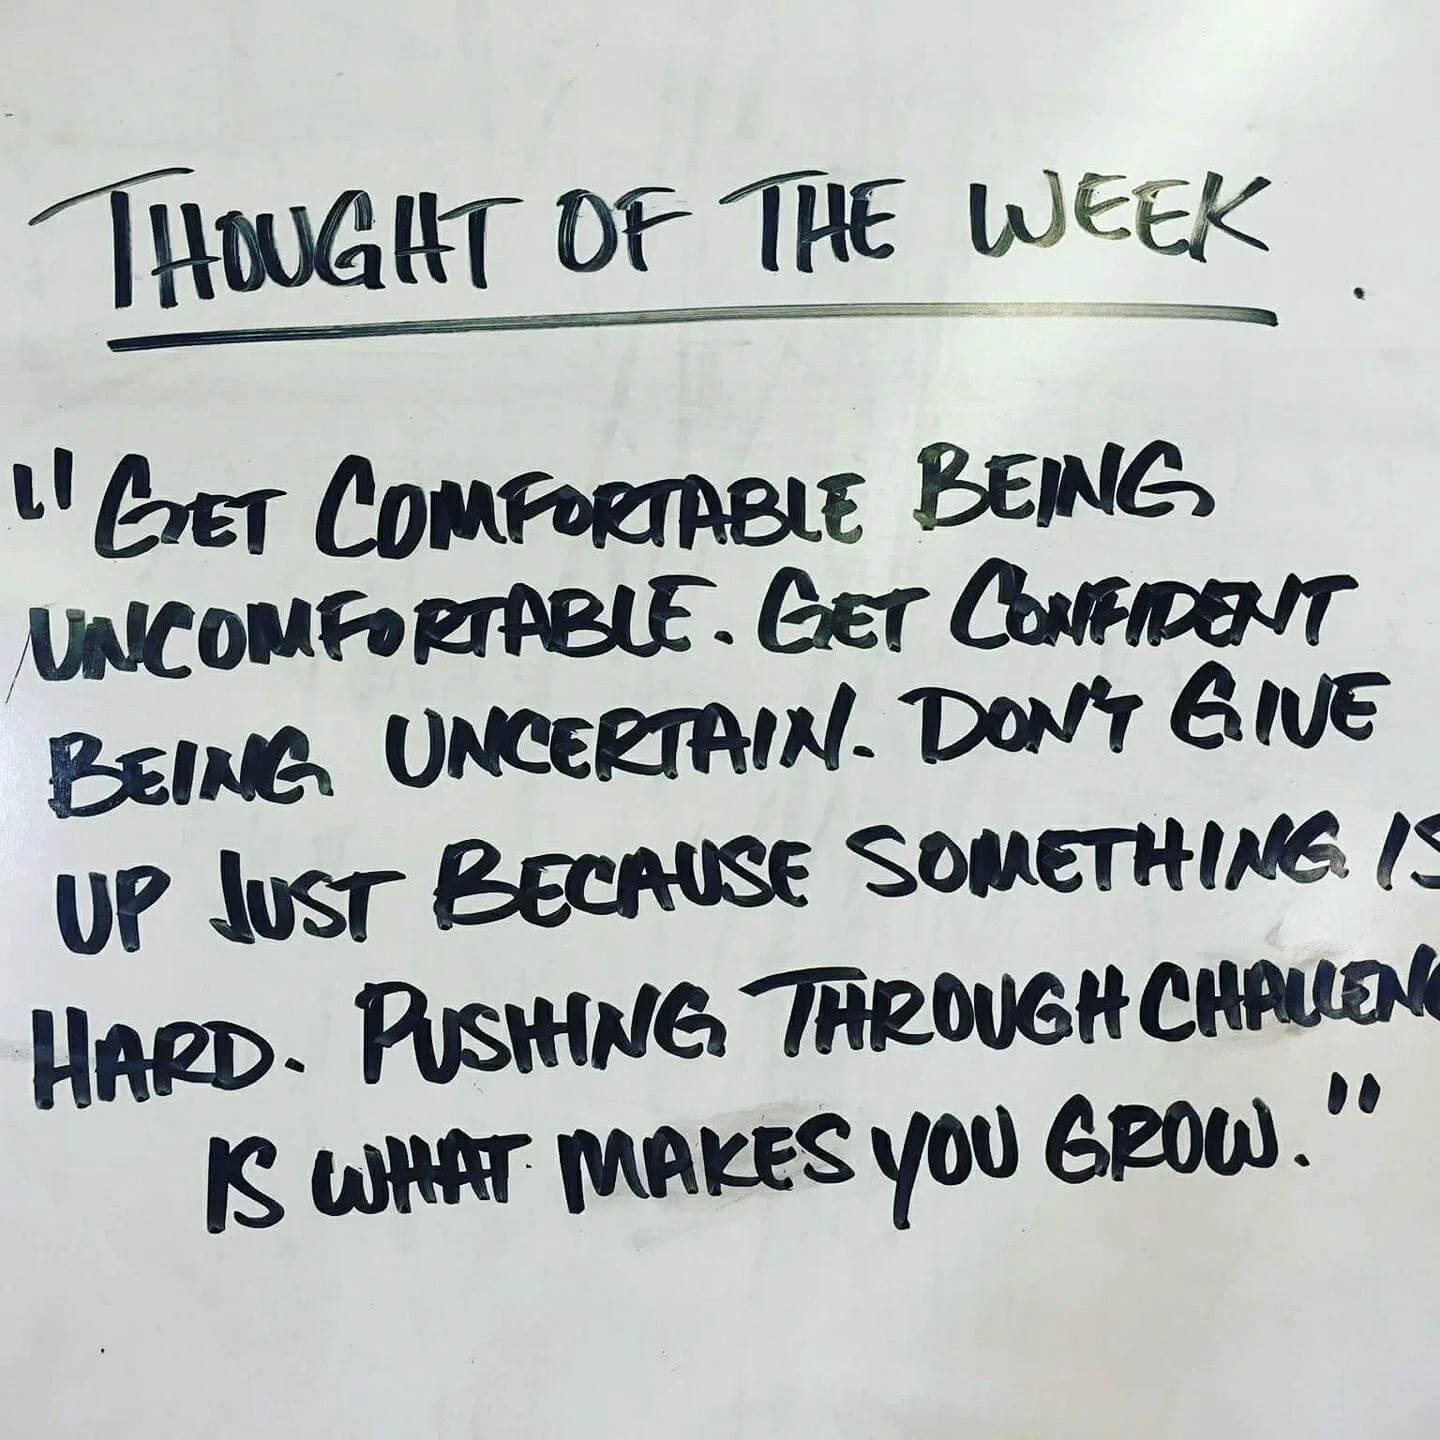 THOUGHT OF THE WEEK
"GET COMFORTABLE BEING
UNCOMFORTABLE. GET CONFIDENT
BEING UNCERTAIN. DON'T GIVE
UP JUST BECAUSE SOMETHING IS
HARD. PUSHING THROUGH CHALLENG
IS WHAT MAKES YOU GROW."